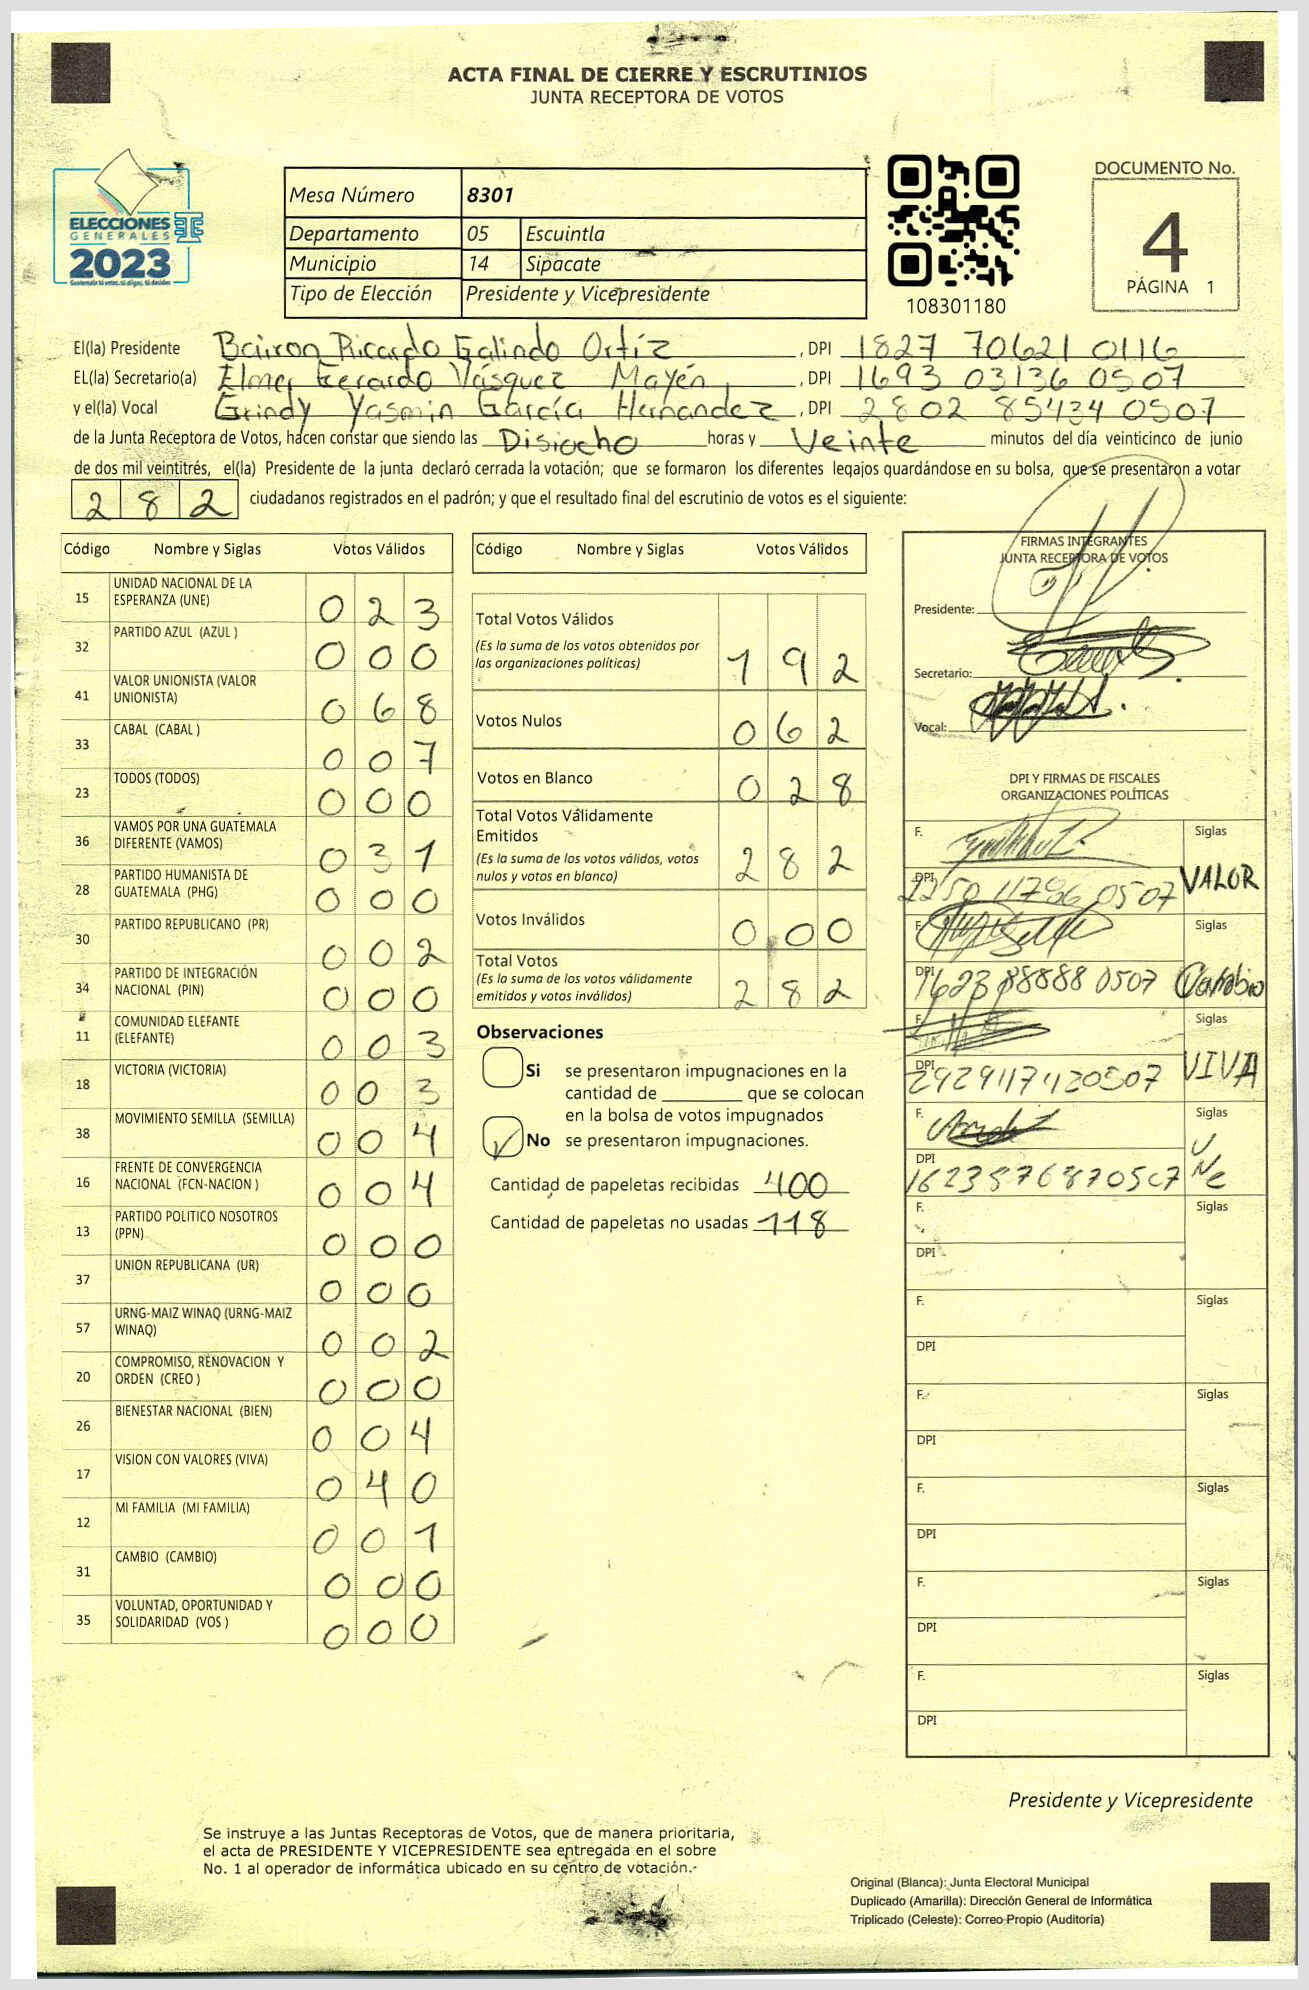 ACTA FINAL DE CIERRE Y ESCRUTINIOS
JUNTA RECEPTORA DE VOTOS
ELECCIONES
GENERALES
2023
Guatemala tú votas, tú eliges, tú decides
Mesa Número 8301
Departamento 05 Escuintla
Municipio 14 Sipacate
Tipo de Elección Presidente y Vicepresidente
108301180
DOCUMENTO No.
4
PÁGINA 1
El(la) Presidente Bairon Ricardo Galindo Ortíz, DPI 1827 70621 0116
EL(la) Secretario(a) Elmer Gerardo Vásquez Mayén, DPI 1693 03136 0507
y el(la) Vocal Grindy Yasmin García Hernandez, DPI 2802 85434 0507
de la Junta Receptora de Votos, hacen constar que siendo las Disiocho horas y Veinte minutos del día veinticinco de junio
de dos mil veintitrés, el(la) Presidente de la junta declaró cerrada la votación; que se formaron los diferentes legajos guardándose en su bolsa, que se presentaron a votar
282 ciudadanos registrados en el padrón; y que el resultado final del escrutinio de votos es el siguiente:
Código Nombre y Siglas Votos Válidos
15 UNIDAD NACIONAL DE LA ESPERANZA (UNE) 023
32 PARTIDO AZUL (AZUL ) 000
41 VALOR UNIONISTA (VALOR UNIONISTA) 068
33 CABAL (CABAL ) 007
23 TODOS (TODOS) 000
36 VAMOS POR UNA GUATEMALA DIFERENTE (VAMOS) 031
28 PARTIDO HUMANISTA DE GUATEMALA (PHG) 000
30 PARTIDO REPUBLICANO (PR) 002
34 PARTIDO DE INTEGRACIÓN NACIONAL (PIN) 000
11 COMUNIDAD ELEFANTE (ELEFANTE) 003
18 VICTORIA (VICTORIA) 003
38 MOVIMIENTO SEMILLA (SEMILLA) 004
16 FRENTE DE CONVERGENCIA NACIONAL (FCN-NACION ) 004
13 PARTIDO POLITICO NOSOTROS (PPN) 000
37 UNION REPUBLICANA (UR) 000
57 URNG-MAIZ WINAQ (URNG-MAIZ WINAQ) 002
20 COMPROMISO, RENOVACION Y ORDEN (CREO ) 000
26 BIENESTAR NACIONAL (BIEN) 004
17 VISION CON VALORES (VIVA) 040
12 MI FAMILIA (MI FAMILIA) 001
31 CAMBIO (CAMBIO) 000
35 VOLUNTAD, OPORTUNIDAD Y SOLIDARIDAD (VOS ) 000
Código Nombre y Siglas Votos Válidos
Total Votos Válidos
(Es la suma de los votos obtenidos por
las organizaciones políticas) 192
Votos Nulos 062
Votos en Blanco 028
Total Votos Válidamente
Emitidos
(Es la suma de los votos válidos, votos
nulos y votos en blanco) 282
Votos Inválidos 000
Total Votos
(Es la suma de los votos válidamente
emitidos y votos inválidos) 282
Observaciones
Si se presentaron impugnaciones en la
cantidad de ________ que se colocan
en la bolsa de votos impugnados
No se presentaron impugnaciones.
Cantidad de papeletas recibidas 400
Cantidad de papeletas no usadas 118
FIRMAS INTEGRANTES
JUNTA RECEPTORA DE VOTOS
Presidente:
Secretario:
Vocal:
DPI Y FIRMAS DE FISCALES
ORGANIZACIONES POLÍTICAS
F. Siglas
DPI 2250 11796 0507 VALOR
F. Siglas
DPI 1623 88888 0507 Cambio
F. Siglas
DPI 2929117420507 VIVA
F. Siglas
DPI 1623976870507 UNe
F. Siglas
DPI
F. Siglas
DPI
F. Siglas
DPI
F. Siglas
DPI
F. Siglas
DPI
F. Siglas
DPI
Presidente y Vicepresidente
Se instruye a las Juntas Receptoras de Votos, que de manera prioritaria,
el acta de PRESIDENTE Y VICEPRESIDENTE sea entregada en el sobre
No. 1 al operador de informática ubicado en su centro de votación.-
Original (Blanca): Junta Electoral Municipal
Duplicado (Amarilla): Dirección General de Informática
Triplicado (Celeste): Correo Propio (Auditoría)